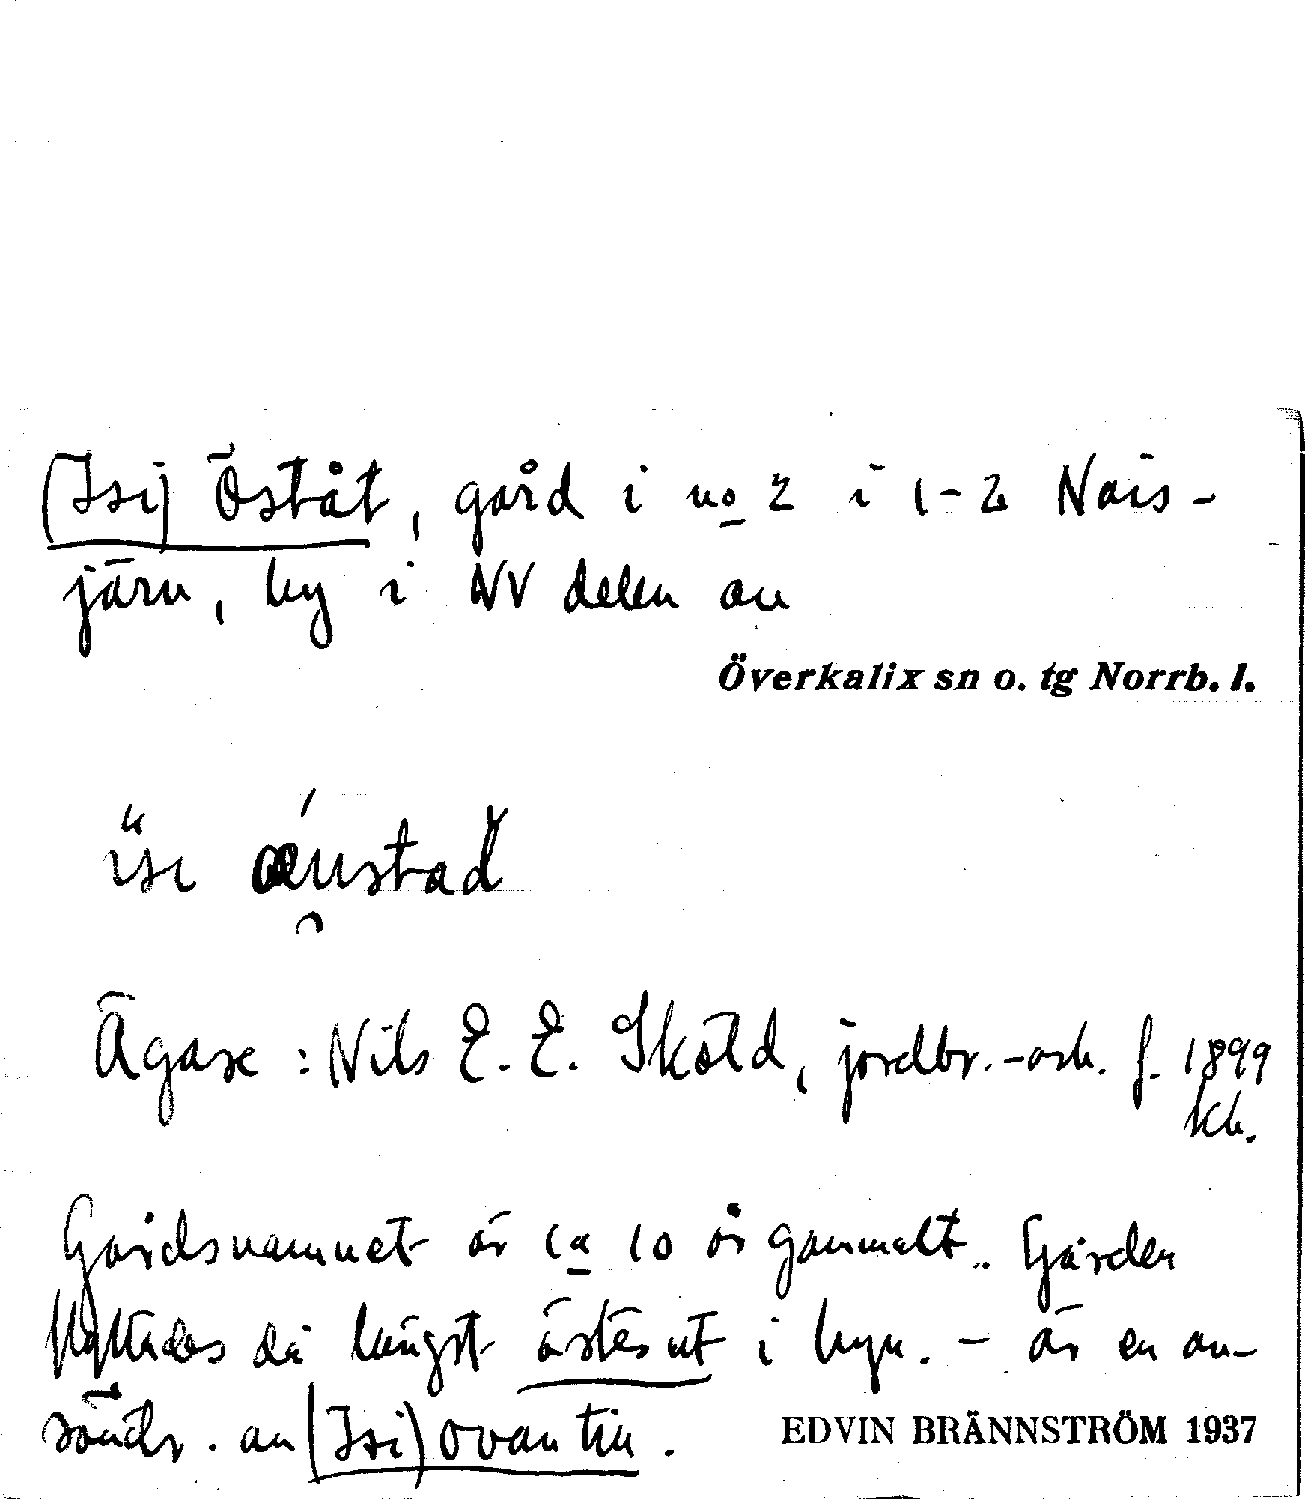 (Isi) Öståt, gård i no 2 i 1-2 Näis-
järv, by i NV delen av
Överkalix sn o. tg Norrb. l.
Ägare : Nils E. E. Sköld, jordbr.-arb. f. 1899
kb.
Gårdsnamnet är ca 10 år gammalt. Gården
flyttades då längst österut i byn. - är en av-
söndr. av (Isi) ovantill.
EDVIN BRÄNNSTRÖM 1937